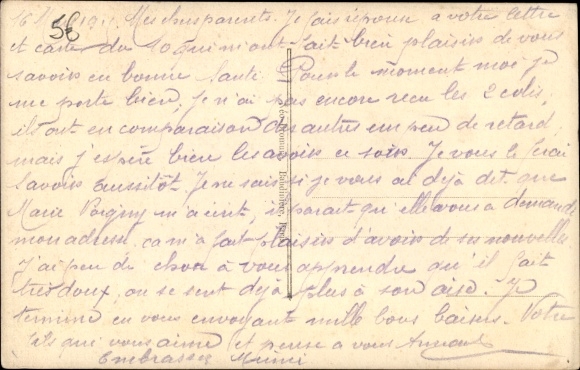 Mes chers parents. Je fais réponse a votre lettre
et carte du 10 qui m'ont fait bien plaisir de vous
savoir en bonne santé. Pour le moment moi je
me porte bien. Je n'ai pas encore recu les 2 colis,
ils ont en comparaison des autres un peu de retard
mais j'espère bien les avoir ce soir. Je vous le ferai
savoir aussitôt. Je ne sais si je vous ai déjà dit que
Marie m'a écrit, il parait qu'elle vous a demandé
mon adresse. ca m'a fait plaisir d'avoir de ses nouvelles
J'ai peu de chose à vous apprendre qu'il fait
très doux, on se sent déjà plus à son aise. Je
termine en vous envoyant mille bons baisers. Votre
fils qui vous aime et pense a vous
Embrassez Mimi